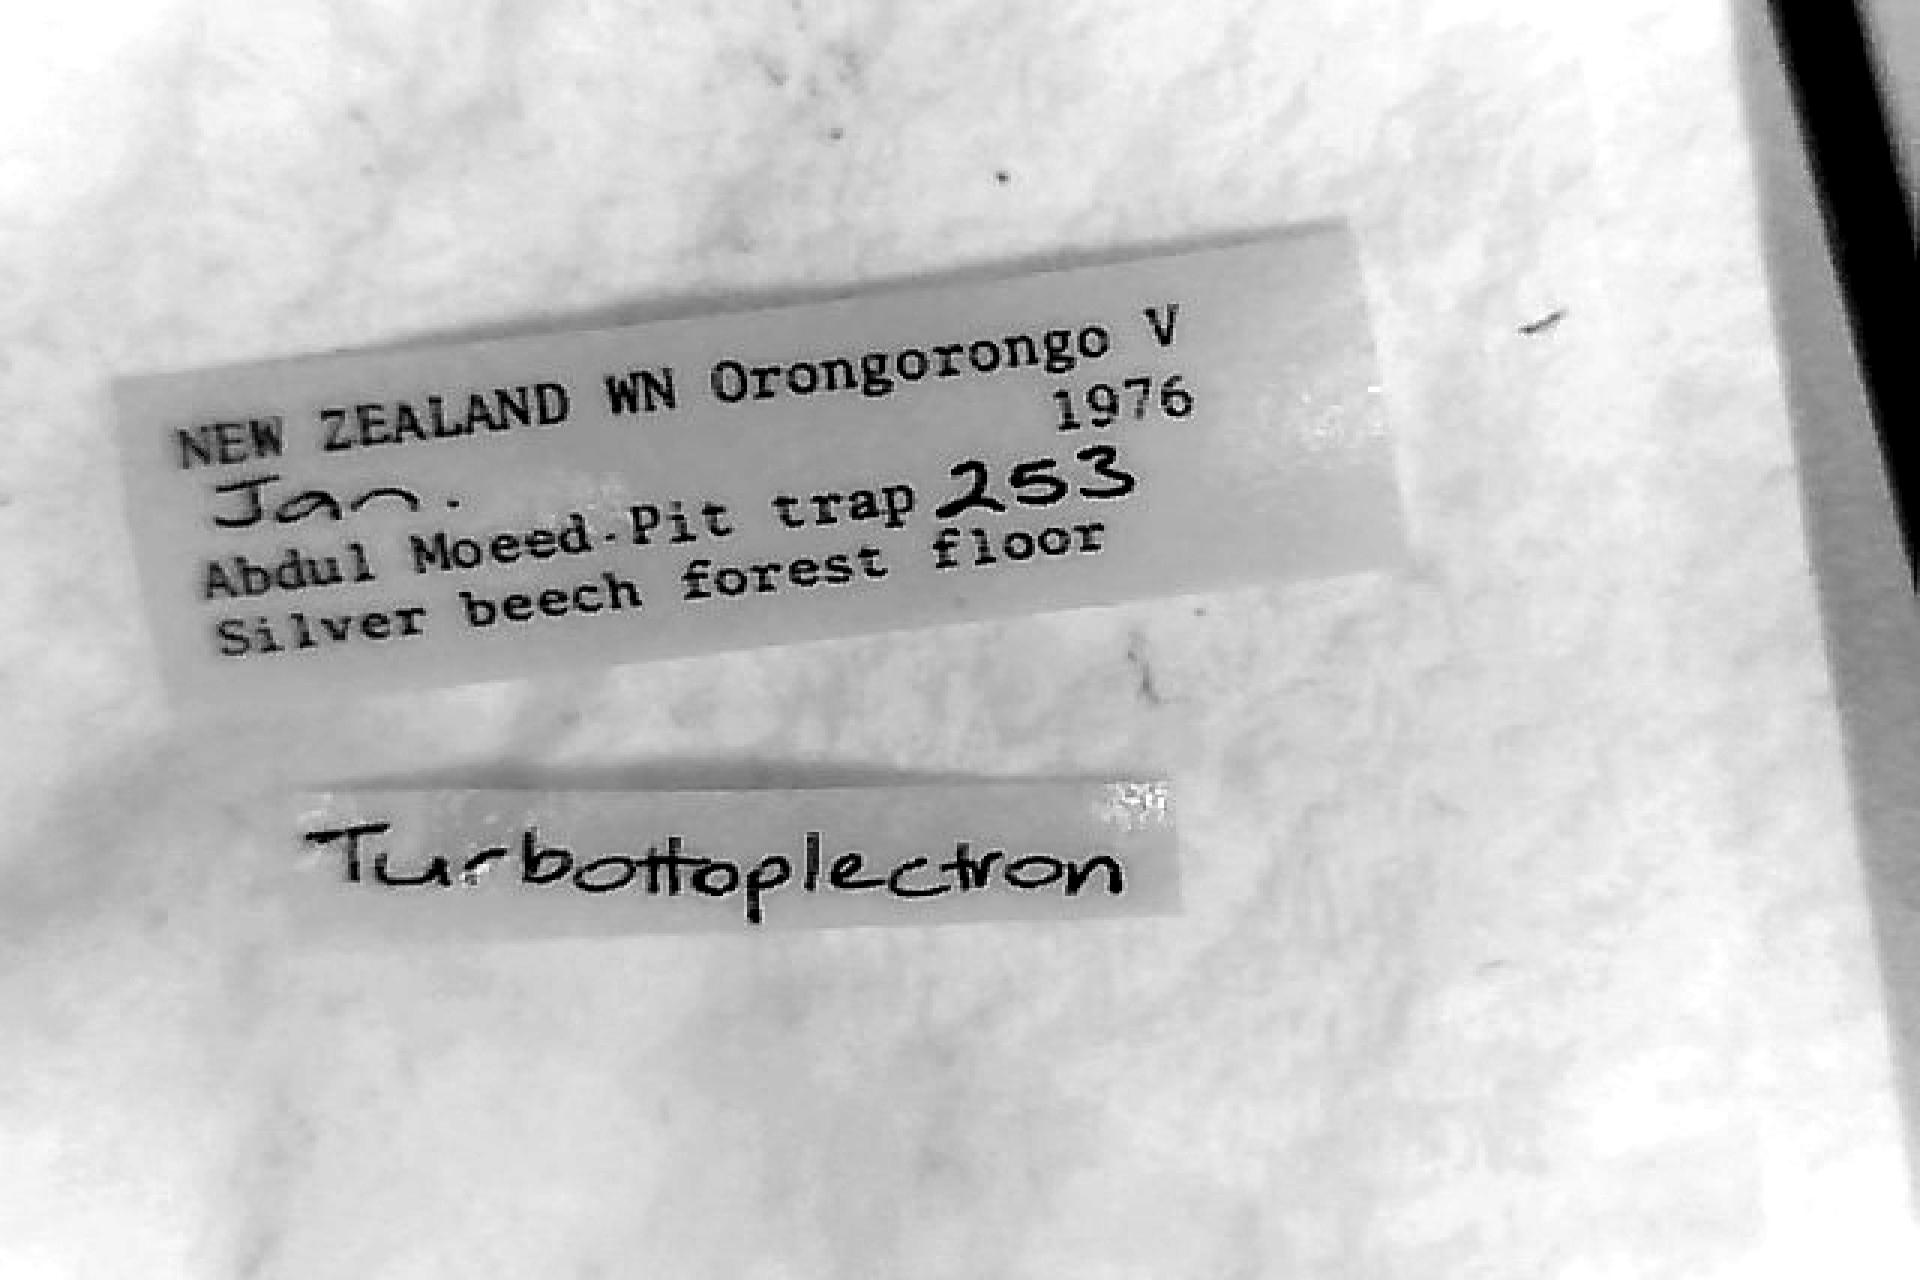 NEW ZEALAND WN Orongorongo V
Jan. 1976
Abdul Moeed-Pit trap 253
Silver beech forest floor
Turbottoplectron